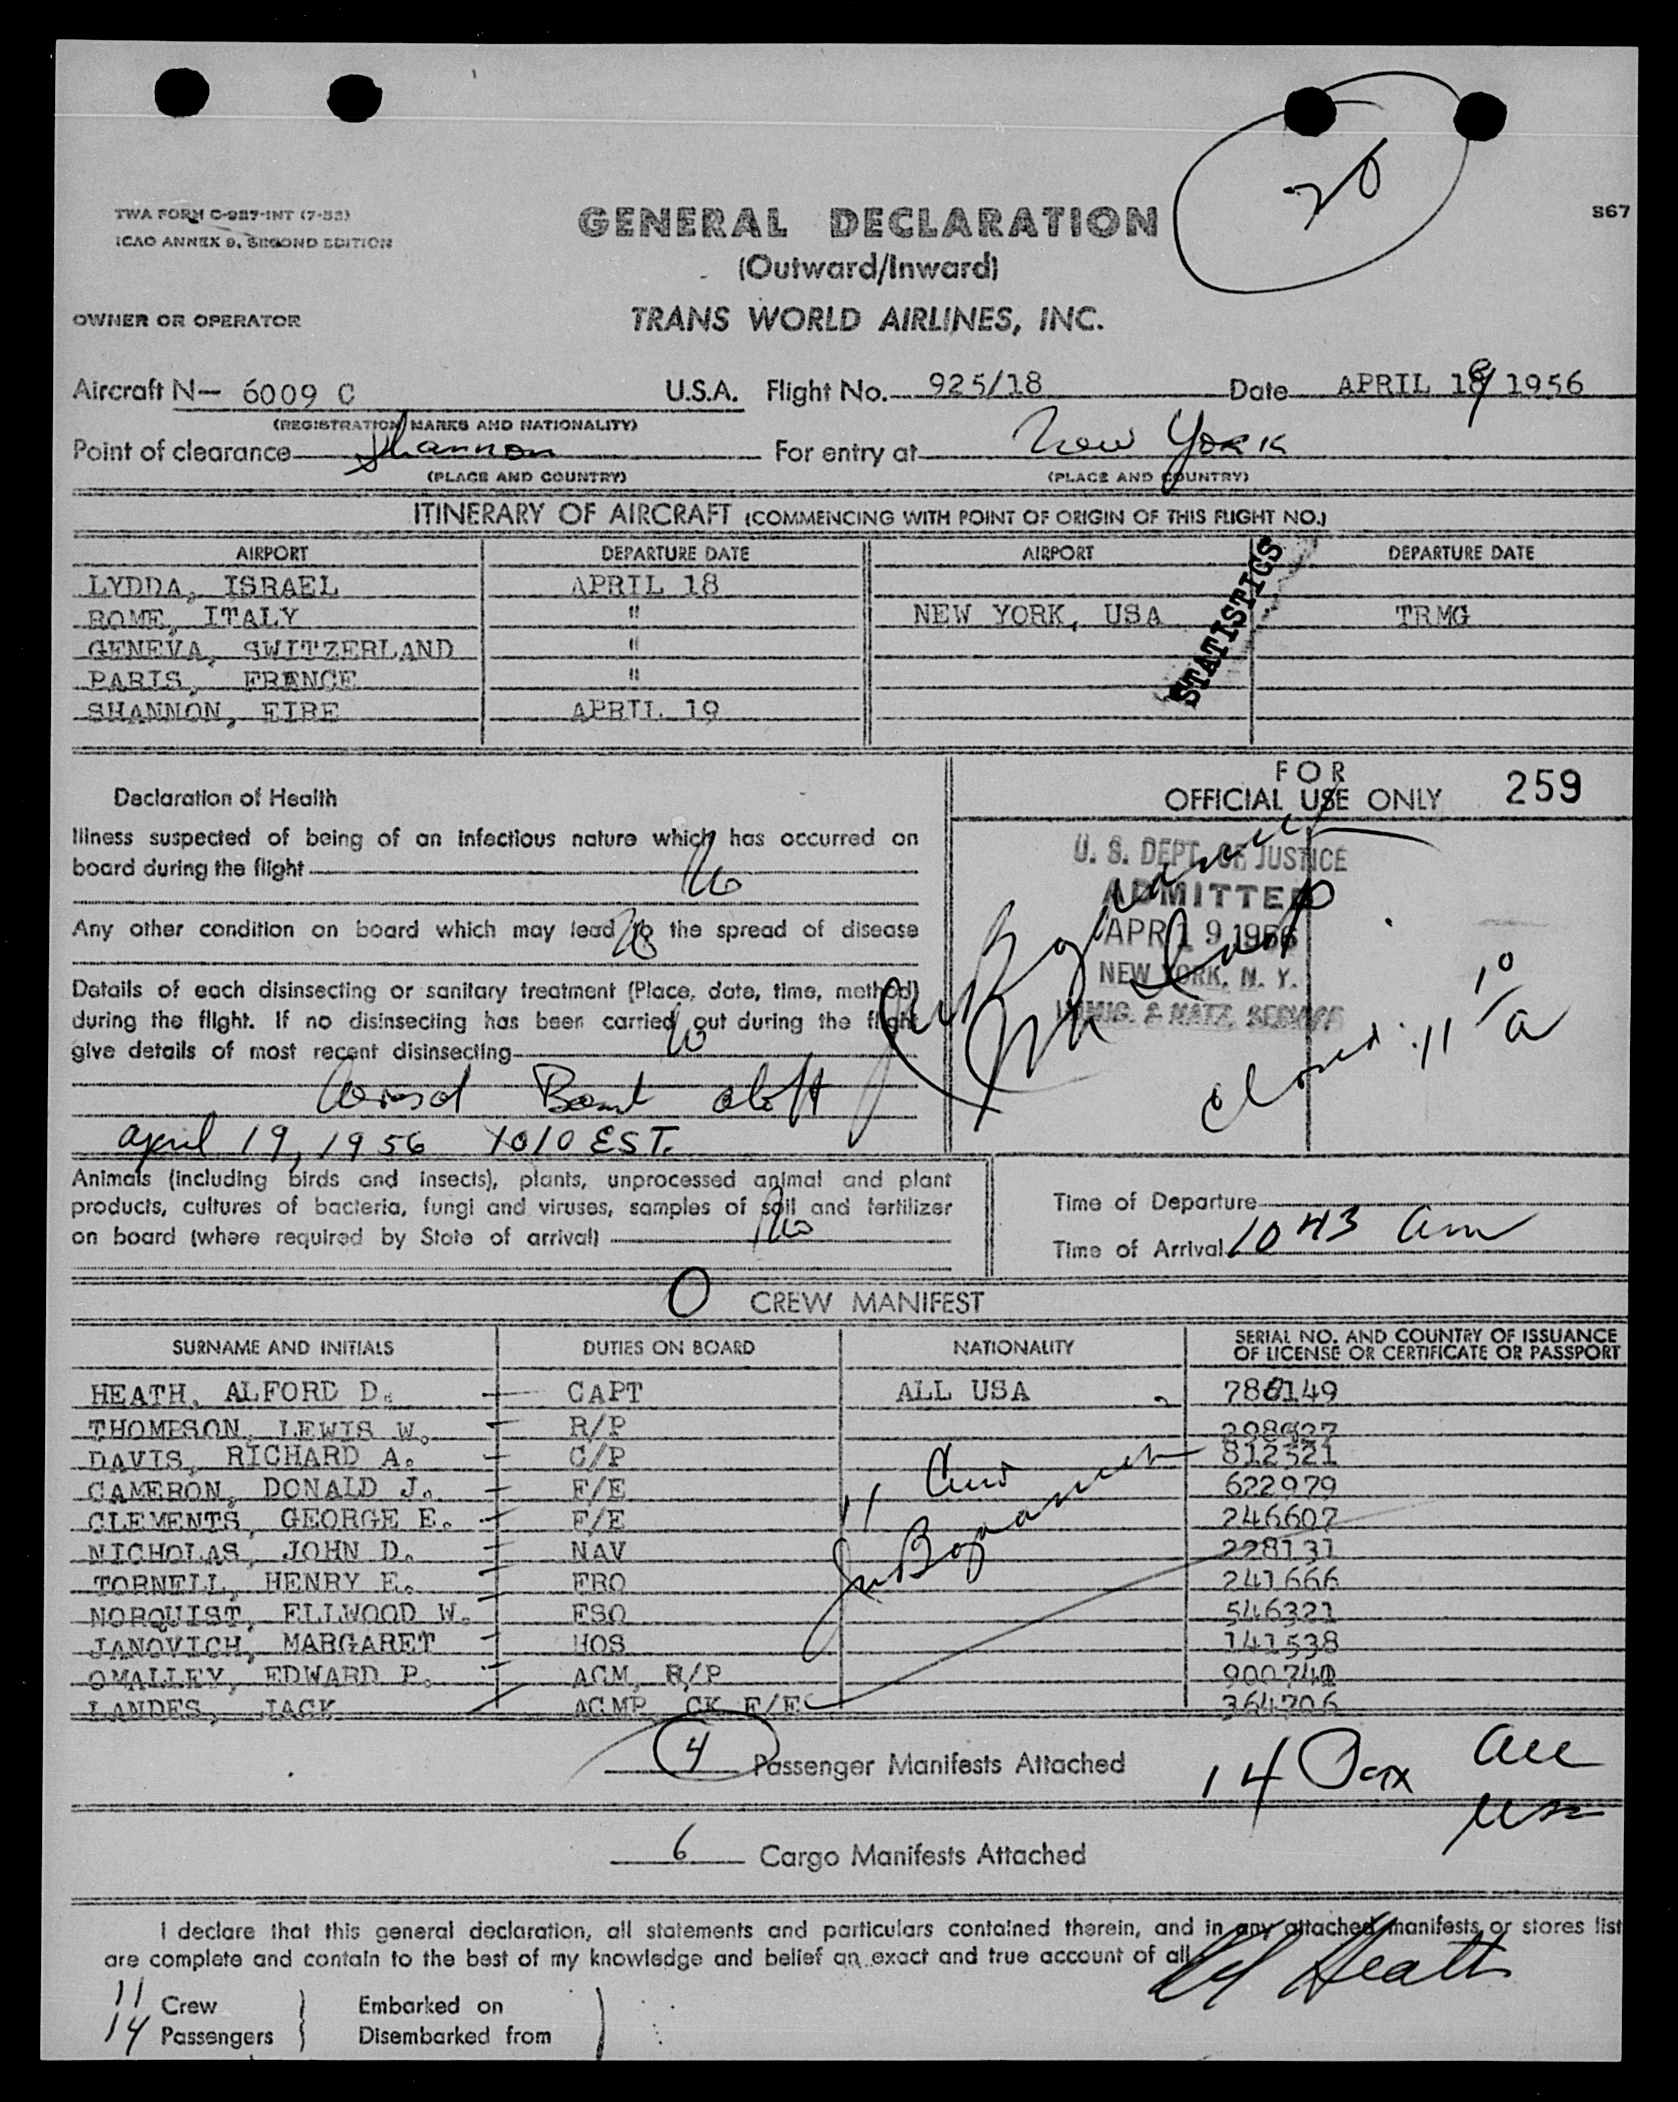 26
TWA FORM C-927-INT (7-53)
ICAO ANNEX 9, SECOND EDITION
GENERAL DECLARATION
867
(Outward/Inward)
OWNER OR OPERATOR
TRANS WORLD AIRLINES, INC.
Aircraft N- 6009 C U.S.A. Flight No. 925/18 Date APRIL 18 1956
(REGISTRATION MARKS AND NATIONALITY)
Point of clearance Shannon For entry at New York
(PLACE AND COUNTRY) (PLACE AND COUNTRY)
ITINERARY OF AIRCRAFT (COMMENCING WITH POINT OF ORIGIN OF THIS FLIGHT NO.)
AIRPORT DEPARTURE DATE AIRPORT DEPARTURE DATE
LYDDA, ISRAEL APRIL 18
ROME, ITALY " NEW YORK, USA TRMG
GENEVA, SWITZERLAND "
PARIS, FRANCE "
SHANNON, EIRE APRIL 19
STATISTICS
Declaration of Health
Illness suspected of being of an infectious nature which has occurred on
board during the flight No
Any other condition on board which may lead to the spread of disease
No
Details of each disinsecting or sanitary treatment (Place, date, time, method)
during the flight. If no disinsecting has been carried out during the flight
give details of most recent disinsecting No
Aerosol Bomb aloft
April 19, 1956 1010 EST.
FOR
OFFICIAL USE ONLY 259
U. S. DEPT. OF JUSTICE
ADMITTED
APR 19 1956
NEW YORK, N. Y.
IMMIG. & NATZ. SERVICE
closed: 11 10/a
Animals (including birds and insects), plants, unprocessed animal and plant
products, cultures of bacteria, fungi and viruses, samples of soil and fertilizer
on board (where required by State of arrival) No
Time of Departure
Time of Arrival 1043 am
O CREW MANIFEST
SURNAME AND INITIALS DUTIES ON BOARD NATIONALITY SERIAL NO. AND COUNTRY OF ISSUANCE
OF LICENSE OR CERTIFICATE OR PASSPORT
HEATH, ALFORD D. CAPT ALL USA 786149
THOMPSON, LEWIS W. R/P 298927
DAVIS, RICHARD A. C/P 812321
CAMERON, DONALD J. F/E 622979
CLEMENTS, GEORGE E. F/E 246607
NICHOLAS, JOHN D. NAV 228131
TORNELL, HENRY E. FRO 241666
NORQUIST, ELLWOOD W. FSO 546321
JANOVICH, MARGARET HOS 141538
OMALLEY, EDWARD P. ACM, R/P 900740
LANDES, JACK ACMP, CK F/E 364706
11 Crew
4 Passenger Manifests Attached
14 Pax all
USA
6 Cargo Manifests Attached
I declare that this general declaration, all statements and particulars contained therein, and in any attached manifests or stores list
are complete and contain to the best of my knowledge and belief an exact and true account of all
Heath
11 Crew Embarked on
14 Passengers Disembarked from